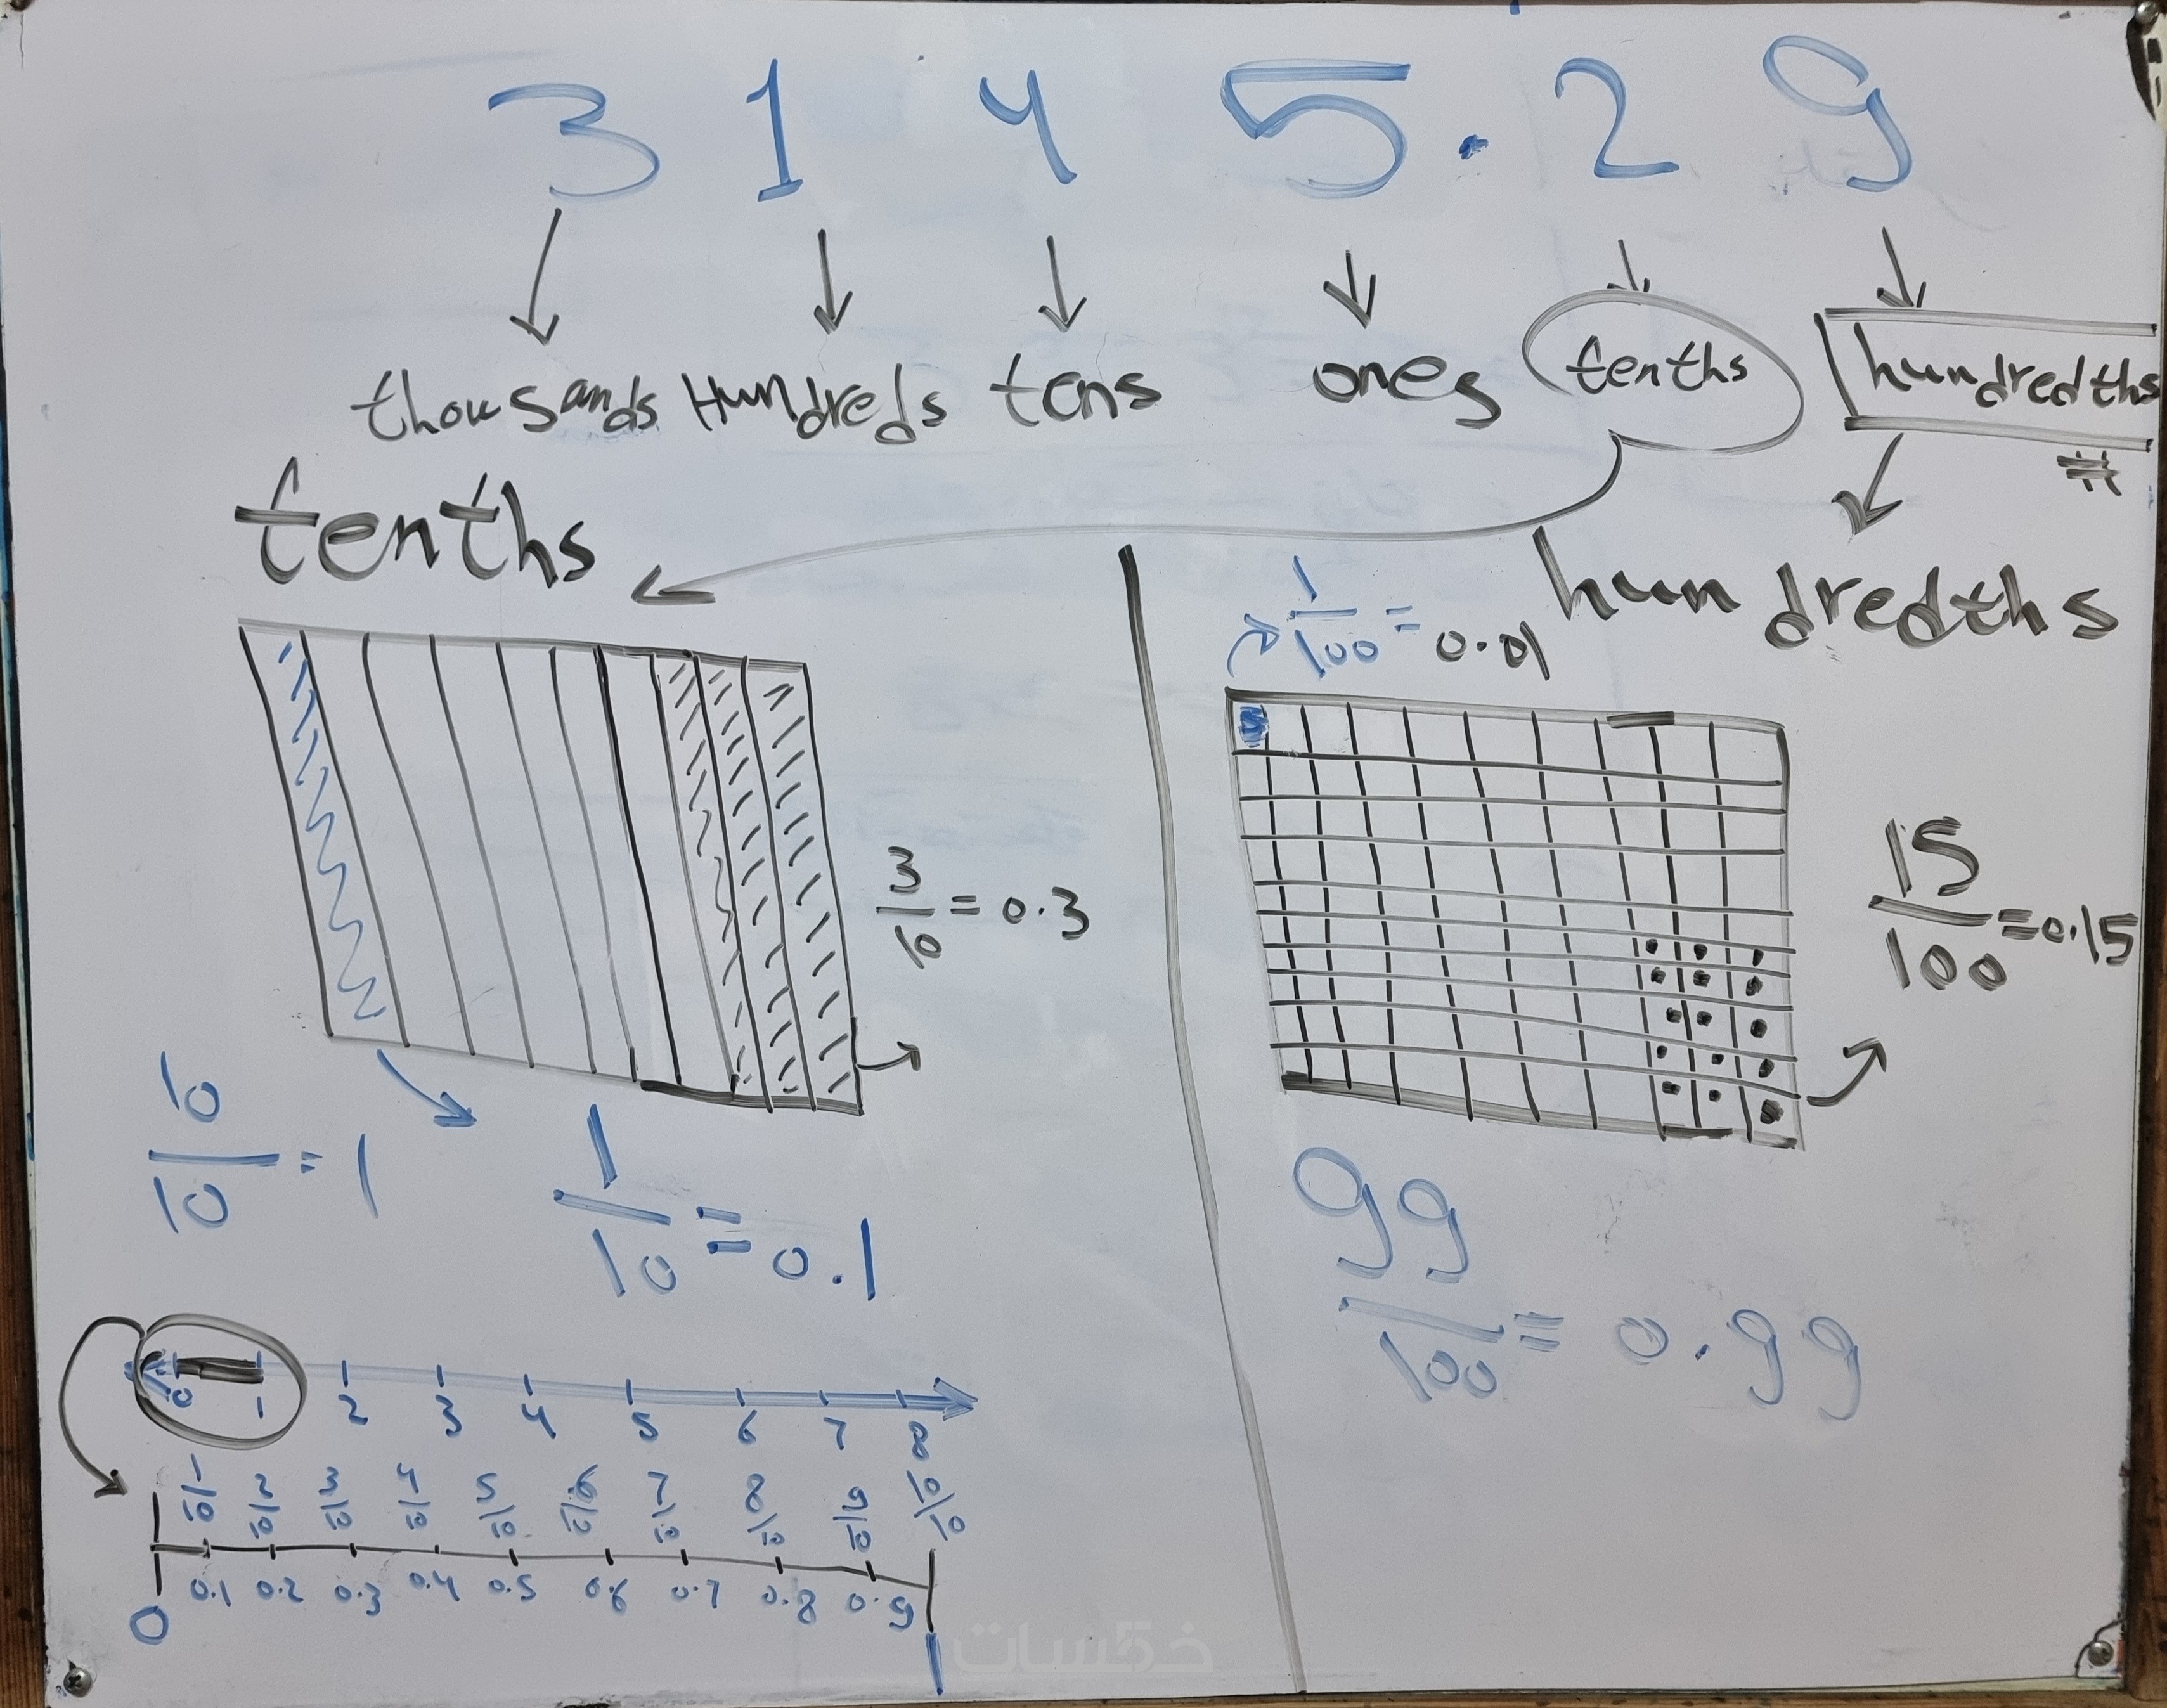 3 1 4 5 . 2 9
thousands Hundreds tens ones tenths hundredths
tenths
3/10 = 0.3
10/10 = 1
1/10 = 0.1
0 1 2 3 4 5 6 7 8
1/10 2/10 3/10 4/10 5/10 6/10 7/10 8/10 9/10 10/10
0.1 0.2 0.3 0.4 0.5 0.6 0.7 0.8 0.9
0 1
hundredths
1/100 = 0.01
15/100 = 0.15
99/100 = 0.99
خمسات